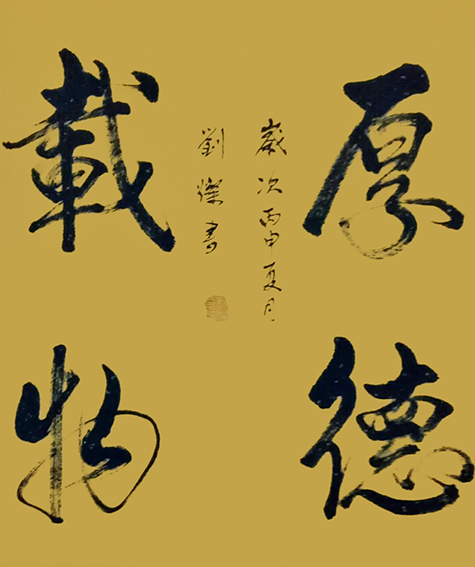 厚德
載物
歲次丙申夏月
劉傑書